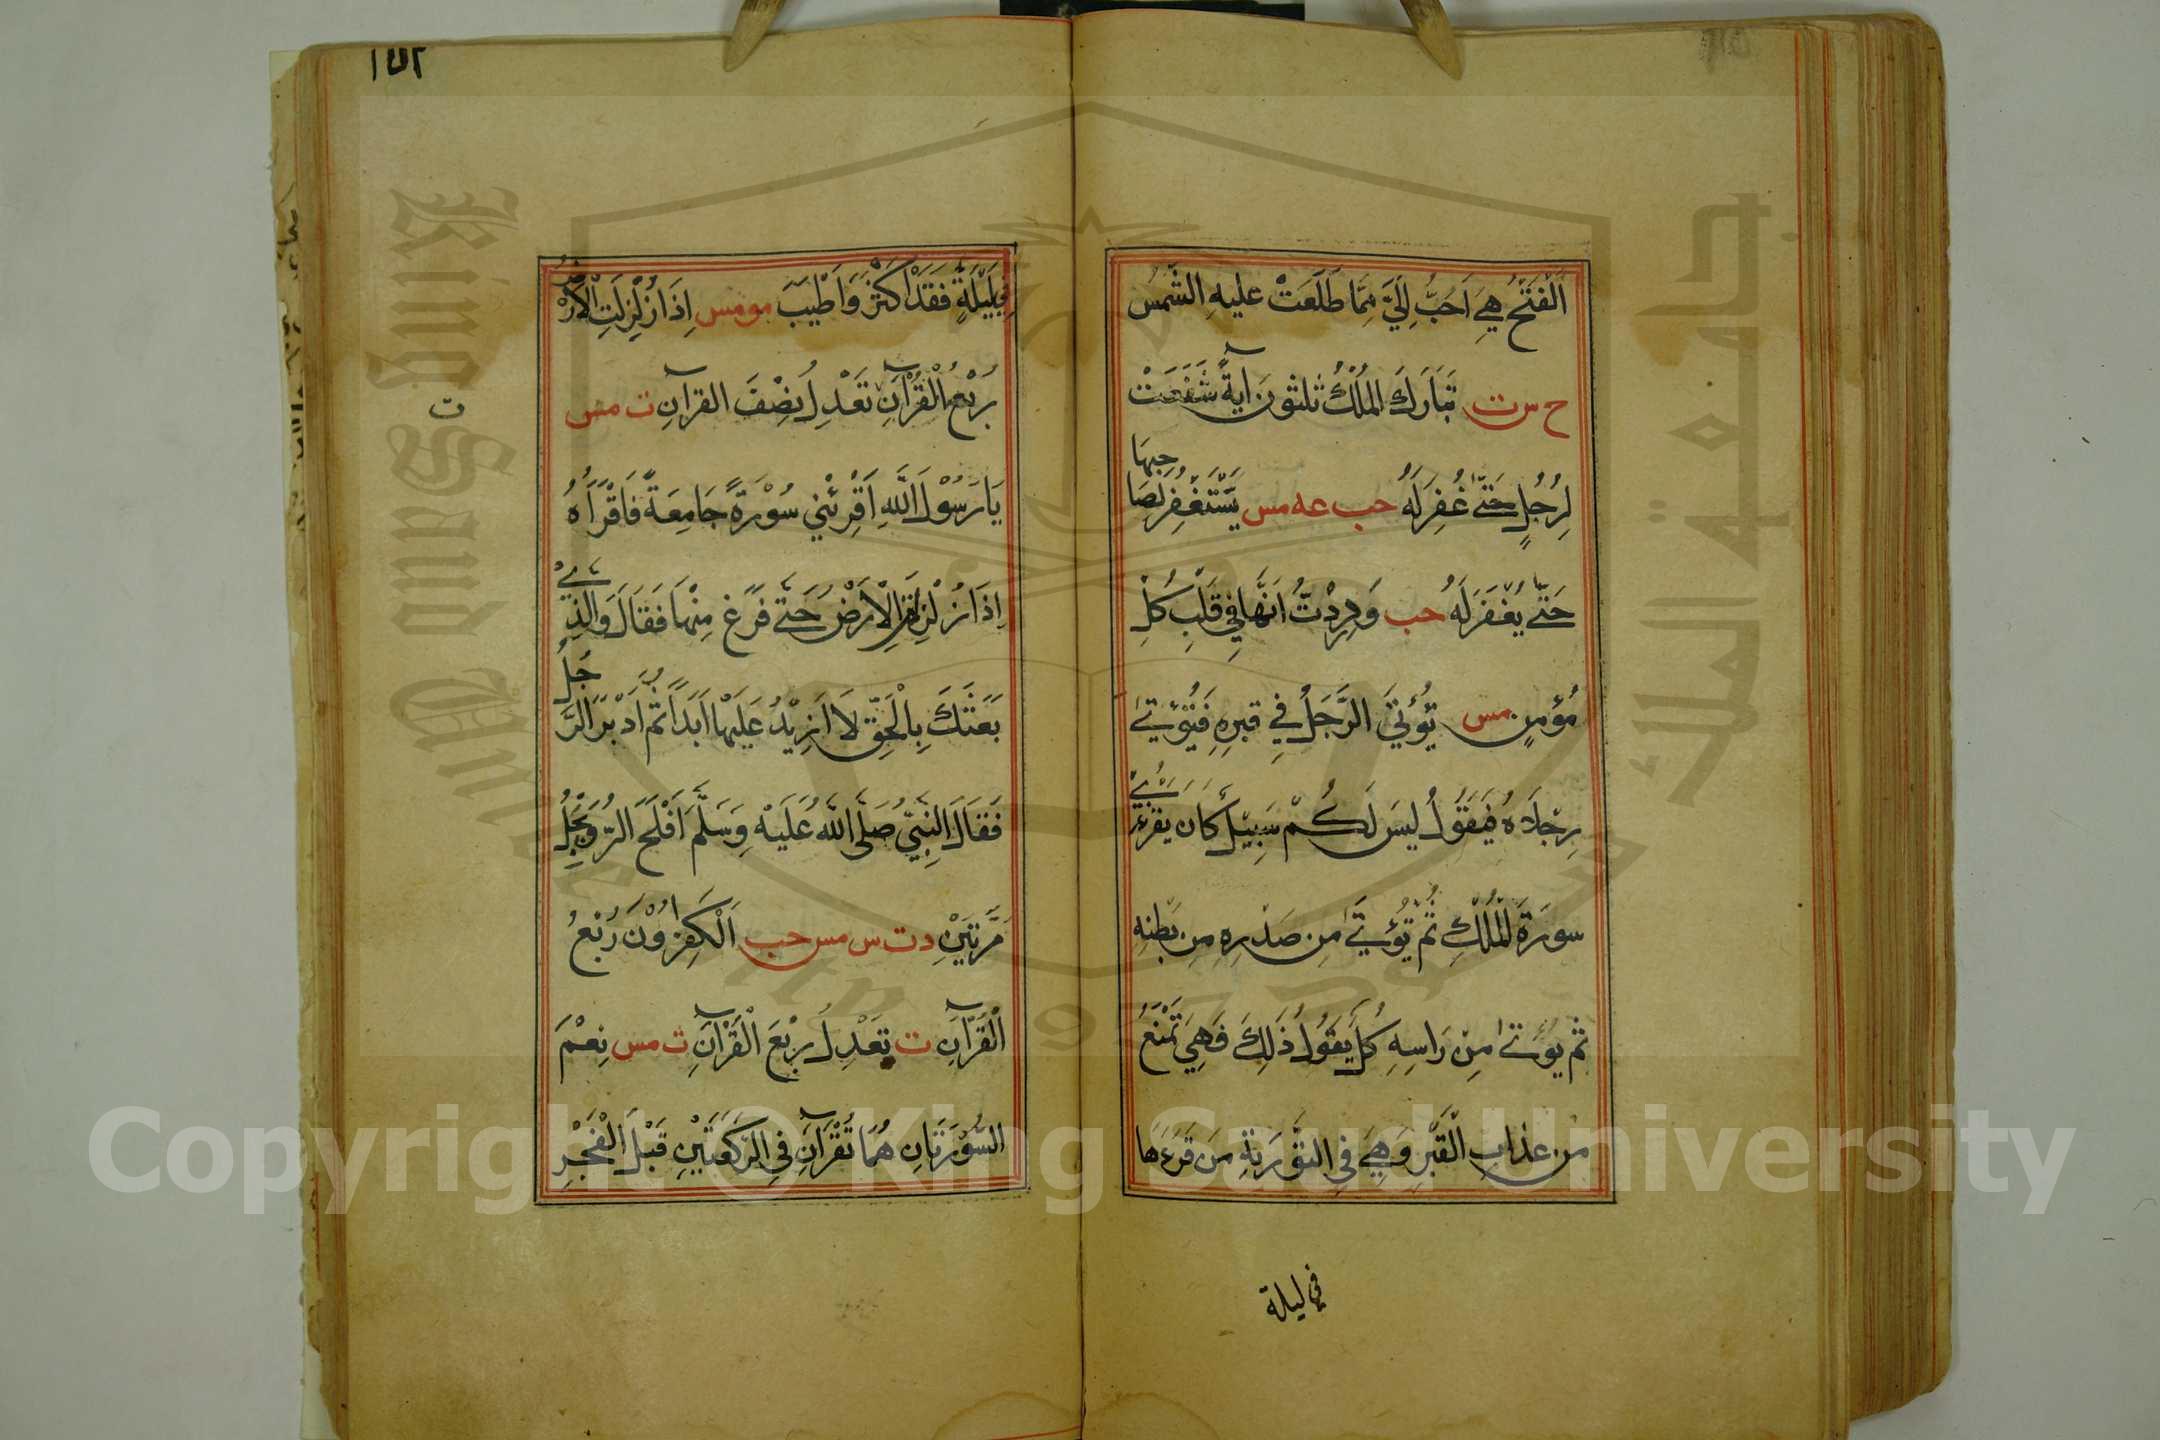 اَلْفَتْحُ هِيَ اَحَبُّ اِلَيَّ مِمَّا طَلَعَتْ عليهِ الشَّمْسُ
خ س ت تَبَارَكَ المُلْكُ ثلثون آيةً شَفَعَتْ
لِرَجُلٍ حَتّٰى غُفِرَ لَهُ حب عه مس يَسْتَغْفِرُ لِصَاحِبِهَا
حَتّٰى يُغْفَرَ لَهُ حب وَدِدْتُ اَنَّهَا فِي قَلْبِ كُلِّ
مُؤمِنٍ مس يُؤْتَى الرَّجُلُ فِي قبرِهِ فَيُؤتى
رِجْلَاهُ فَيَقُولُ لَيسَ لَكُمْ سَبِيْل كَانَ يقرَءُ بِي
سورَةَ الْمُلْكِ ثُمَّ يُؤتى مِن صَدْرِهِ مِن بَطْنِهِ
ثم يُؤتى مِنْ رَاسِهِ كُلٌّ يَقُولُ ذٰلِكَ فَهِيَ تَمْنَعُ
من عذابِ الْقَبْرِ وَهِيَ فِي التَّوْرَيةِ مَن قَرَءَهَا
في ليلة
١٥٢
فِي لَيْلَةٍ فَقَدْ اَكْثَرَ وَاَطْيَبَ مومس اِذَا زُلْزِلَتِ الْاَرْضُ
رُبْعُ الْقُرْآنِ تَعْدِلُ نِصْفَ القرآنِ ت مس
يَا رَسُوْلَ اللّٰهِ اَقْرِئْنِي سُوْرَةً جَامِعَةً فَاَقْرَأَهُ
اِذَا زُلْزِلَتِ الْاَرْضُ حَتّٰى فَرَغَ مِنْهَا فَقَالَ وَالَّذِي
بَعَثَكَ بِالْحَقِّ لَا اَزِيْدُ عَلَيْهَا اَبَدًا ثُمَّ اَدْبَرَ الرَّجُلُ
فَقَالَ النَّبِيُّ صَلَّى اللّٰهُ عَلَيْهِ وَسَلَّمَ اَفْلَحَ الرُّوَيْجِلُ
مَرَّتَيْنِ د ت س مس حب اَلْكٰفِرُوْنَ رُبْعُ
الْقُرْآنِ ت تَعْدِلُ رُبْعَ الْقُرْآنِ ت مس نِعْمَ
السُّوْرَتَانِ هُمَا تُقْرَآنِ فِي الرَّكْعَتَيْنِ قَبْلَ الْفَجْرِ
King Saud University
جامعة الملك سعود
Copyright © King Saud University